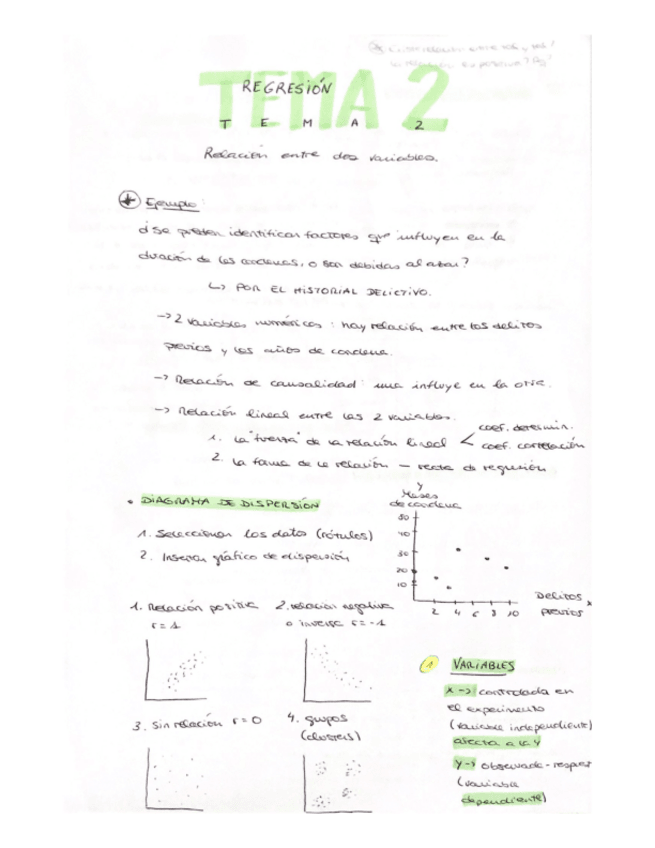 TEMA 2
REGRESIÓN
T E M A 2
Relación entre dos variables.
Ejemplo:
¿Se pueden identificar factores que influyen en la
duración de las condenas, o son debidas al azar?
↳ POR EL HISTORIAL DELICTIVO.
-> 2 variables numéricas: hay relación entre los delitos
previos y los años de condena.
-> Relación de causalidad: una influye en la otra.
-> Relación lineal entre las 2 variables.
1. La "fuerza" de la relación lineal < coef. determin.
coef. correlación
2. La forma de la relación – recta de regresión
• DIAGRAMA DE DISPERSIÓN
1. Seleccionar los datos (rótulos)
2. Insertar gráfico de dispersión
y
Meses
de condena
50
40
30
20
10
2 4 6 8 10
Delitos x
previos
1. Relación positiva
r = 1
2. relación negativa
o inversa r = -1
3. Sin relación r = 0
4. grupos
(clusters)
1 VARIABLES
x -> controlada en
el experimento
(variable independiente)
afecta a la y
y -> observada - respuest
(variable
dependiente)